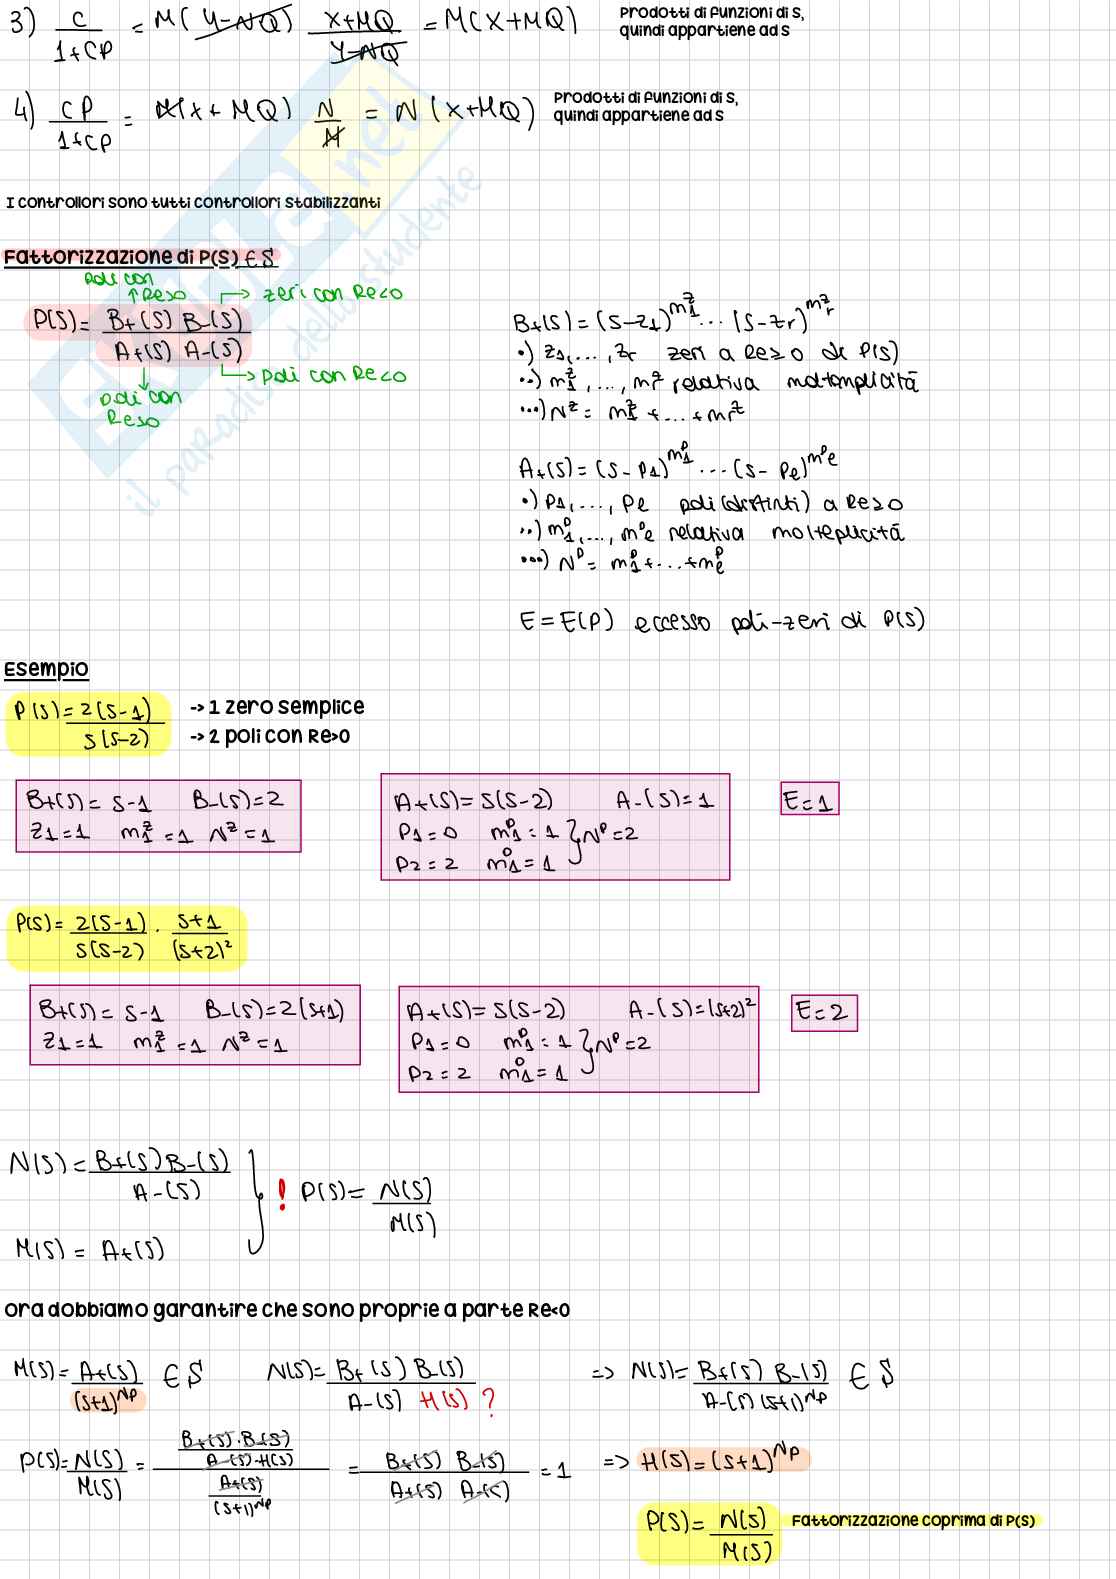 3) C/(1+CP) = M(Y-NQ) (X+MQ)/(Y-NQ) = M(X+MQ) Prodotti di funzioni di S,
quindi appartiene ad S
4) CP/(1+CP) = M(X+MQ) N/M = N(X+MQ) Prodotti di funzioni di S,
quindi appartiene ad S
I controllori sono tutti controllori stabilizzanti
Fattorizzazione di P(S) ∈ S
poli con
↑ Re≥0 → zeri con Re<0
P(S) = B+(S) B-(S) / A+(S) A-(S)
→ poli con Re<0
poli con
Re≥0
B+(S) = (S-z1)^m1^z ... (S-zr)^mr^z
•) z1, ..., zr zeri a Re≥0 di P(S)
••) m1^z, ..., mr^z relativa moltomplicità
•••) N^z = m1^z + ... + mr^z
A+(S) = (S-P1)^m1^p ... (S-Pe)^m^pe
•) P1, ..., Pe poli (distinti) a Re≥0
••) m1^p, ..., m^pe relativa molteplicità
•••) N^p = m1^p + ... + me^p
E = E(P) eccesso poli-zeri di P(S)
Esempio
P(S) = 2(S-1) / S(S-2) -> 1 zero semplice
-> 2 poli con Re>0
B+(S) = S-1 B-(S) = 2
z1 = 1 m1^z = 1 N^z = 1
A+(S) = S(S-2) A-(S) = 1
P1 = 0 m1^p = 1 } N^p = 2
P2 = 2 m1^p = 1
E = 1
P(S) = 2(S-1) / S(S-2) · (S+1) / (S+2)²
B+(S) = S-1 B-(S) = 2(S+1)
z1 = 1 m1^z = 1 N^z = 1
A+(S) = S(S-2) A-(S) = (S+2)²
P1 = 0 m1^p = 1 } N^p = 2
P2 = 2 m1^p = 1
E = 2
N(S) = B+(S) B-(S) / A-(S)
! P(S) = N(S) / M(S)
M(S) = A+(S)
Ora dobbiamo garantire che sono proprie a parte Re<0
M(S) = A+(S) / (S+1)^Np ∈ S N(S) = B+(S) B-(S) / A-(S) H(S) ? => N(S) = B+(S) B-(S) / A-(S) (S+1)^Np ∈ S
P(S) = N(S) / M(S) = (B+(S)·B-(S) / A-(S)·H(S)) / (A+(S) / (S+1)^Np) = B+(S) B-(S) / A+(S) A-(S) = 1 => H(S) = (S+1)^Np
P(S) = N(S) / M(S) Fattorizzazione coprima di P(S)
skuola.net
il paradiso dello studente